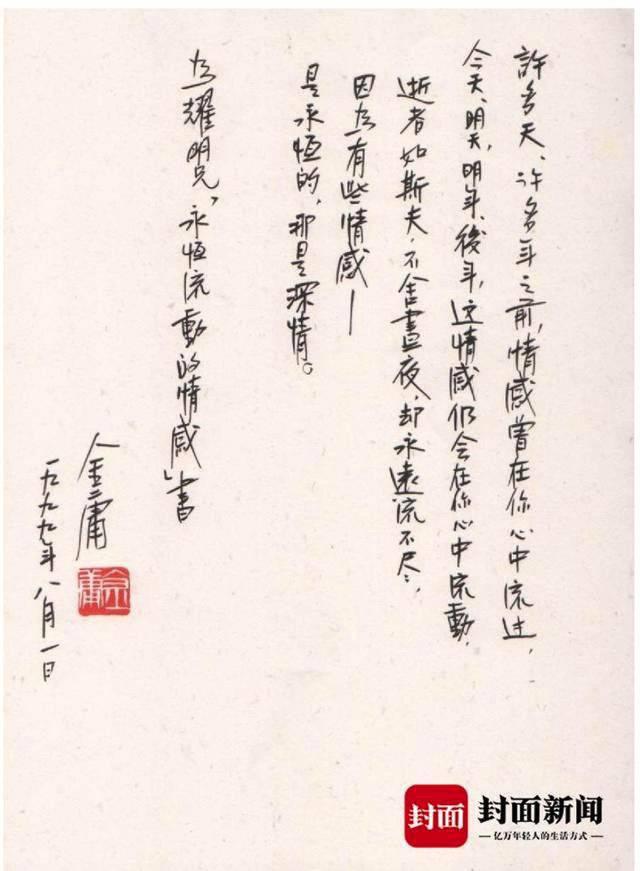 許多天、許多年之前，情感曾在你心中流过，
今天、明天，明年、後年，这情感仍会在你心中流動，
逝者如斯夫，不舍晝夜，却永遠流不尽，
因为有些情感—
是永恆的，那是深情。
为耀明兄「永恆流動的情感」書
金庸
金庸
一九九九年八月一日
封面
封面新闻
亿万年轻人的生活方式